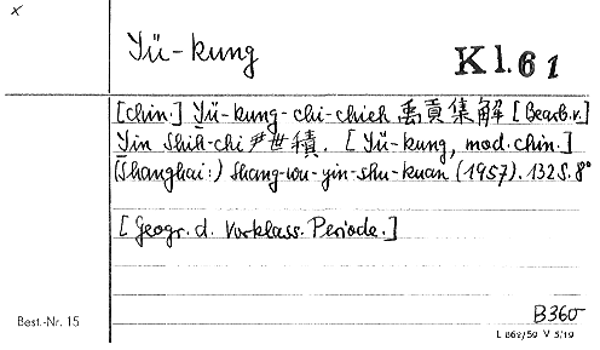 x
Yü-kung
Kl. 61
[chin.] Yü-kung-chi-chieh 禹貢集解 [Bearb.v.]
Yin Shih-chi 尹世積. [Yü-kung, mod. chin.]
(Shanghai:) Shang-wu-yin-shu-kuan (1957). 132 S. 8°
[Geogr. d. Vorklass. Periode.]
B360
Best.-Nr. 15
L 868/59 V 5/19